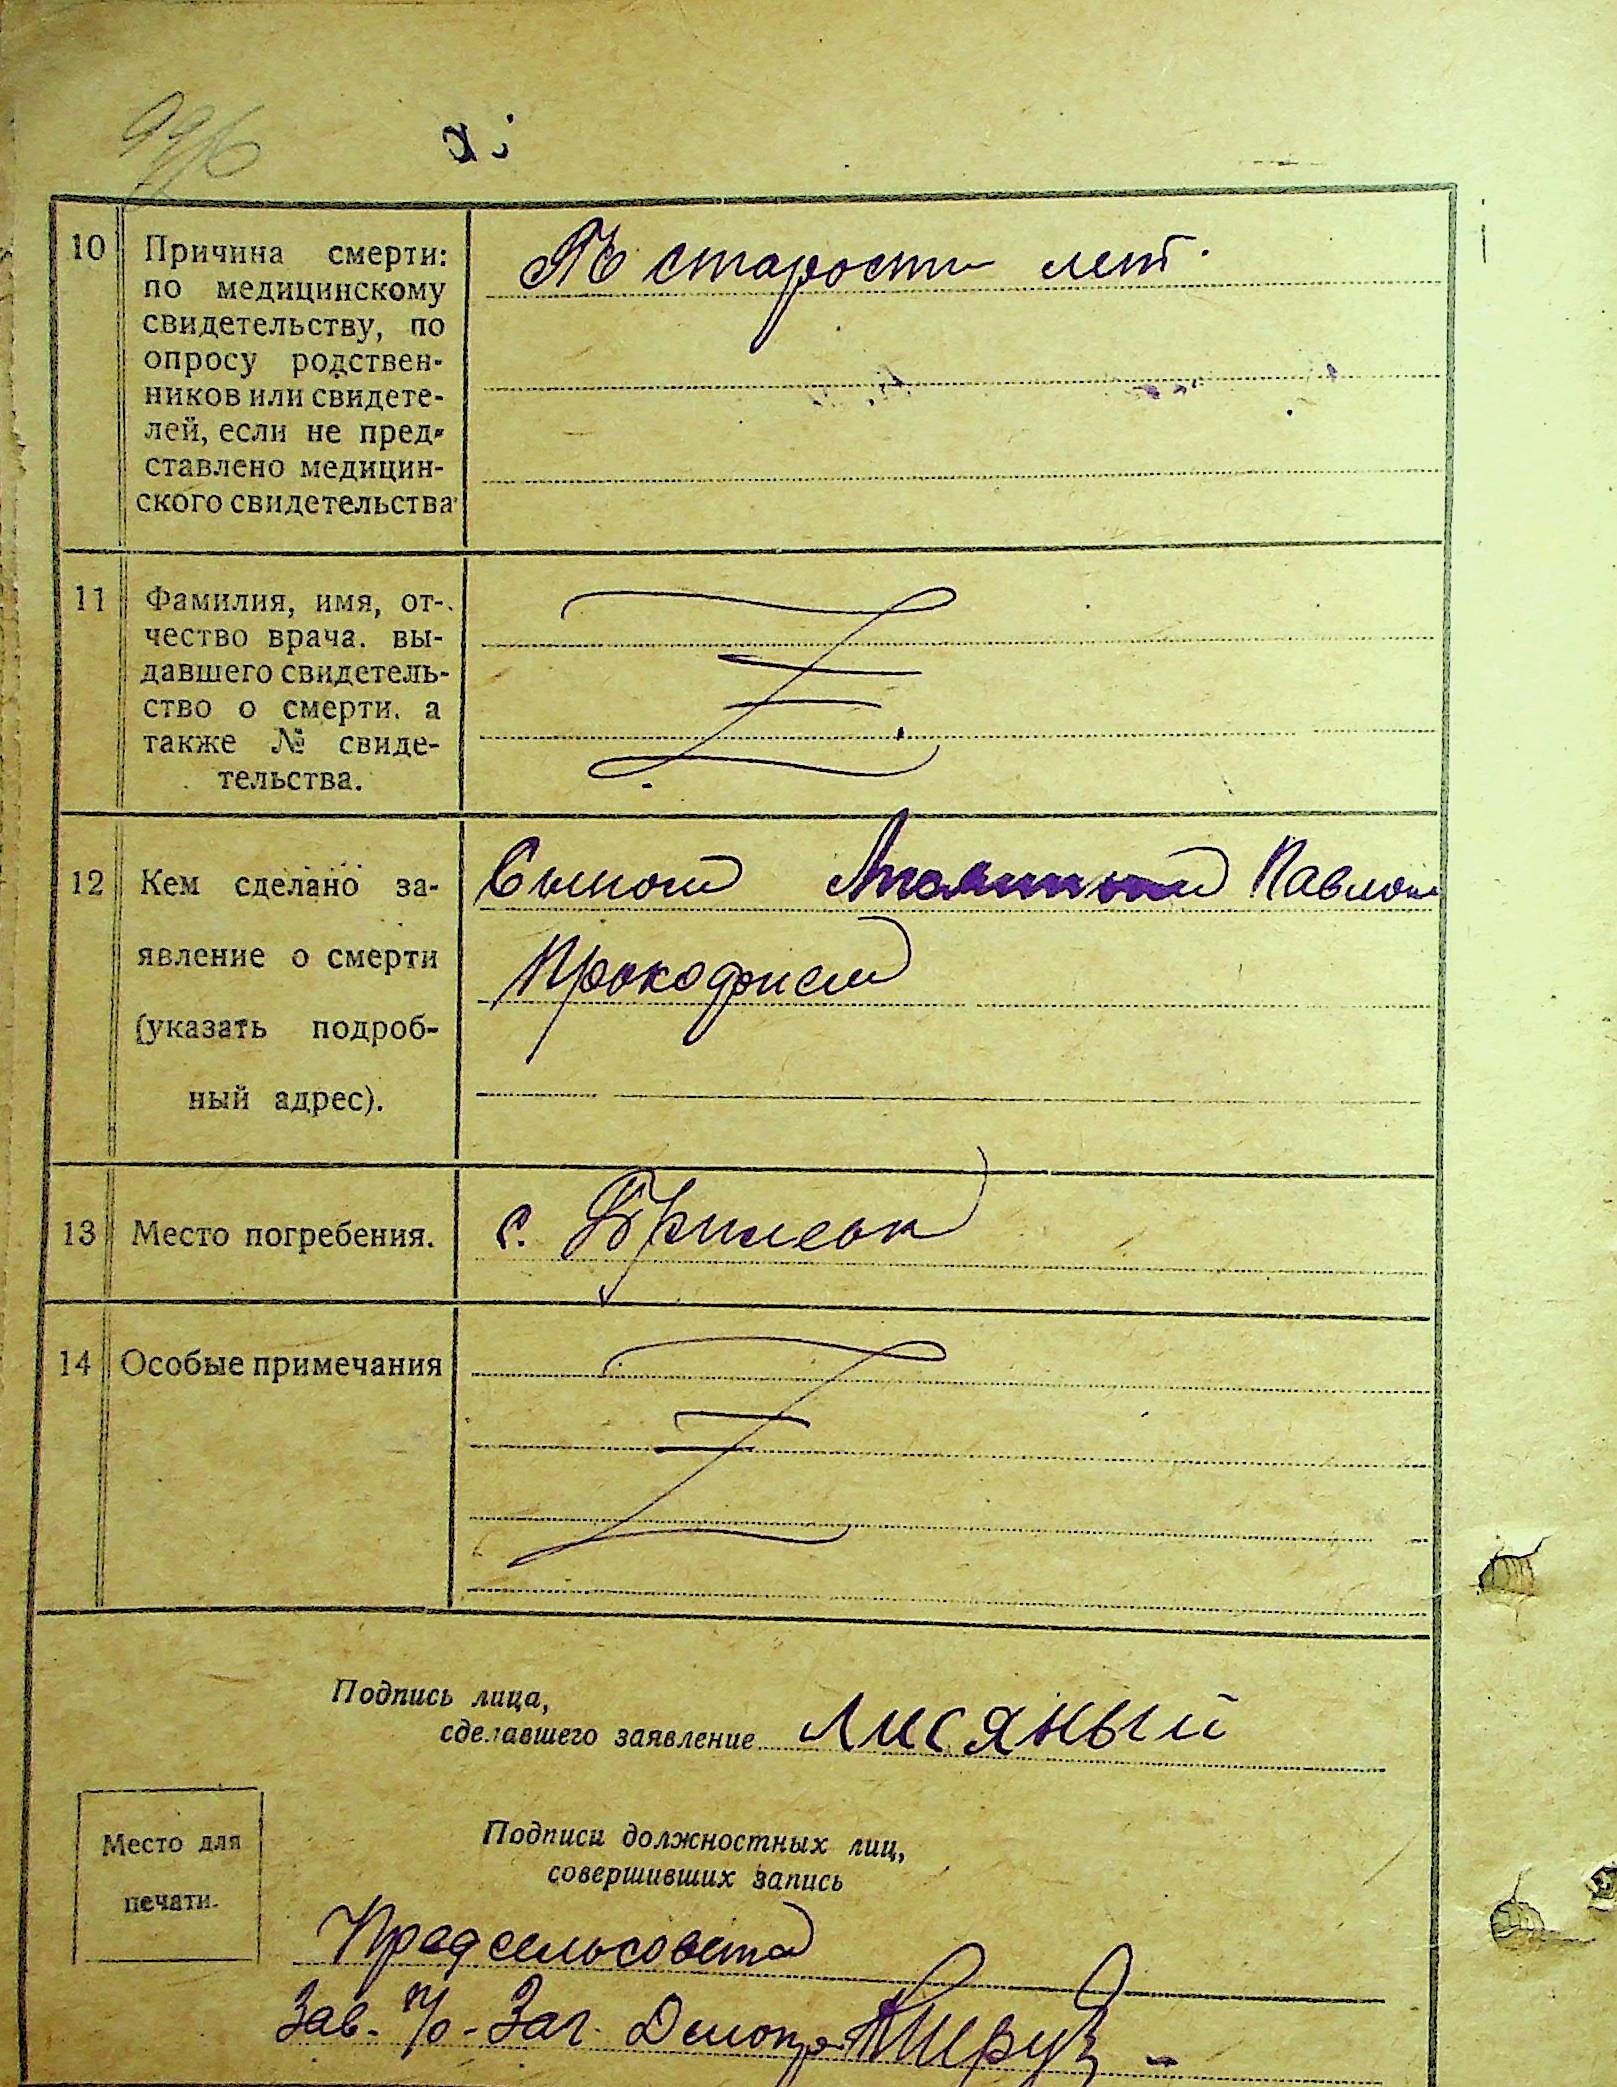 10 Причина смерти: по медицинскому свидетельству, по опросу родствен-
ников или свидете-
лей, если не пред-
ставлено медицин-
ского свидетельства
старости лет.
11 Фамилия, имя, от-
чество врача. вы-
давшего свидетель-
ство о смерти. а
также № свиде-
тельства.
12 Кем сделано за-
явление о смерти
(указать подроб-
ный адрес).
Сыном Павлом
Прокофием
13 Место погребения.
с.
14 Особые примечания
Подпись лица,
сделавшего заявление Лисяный
Место для
печати.
Подписи должностных лиц,
совершивших запись
Предсельсовета
Зав. Заг.